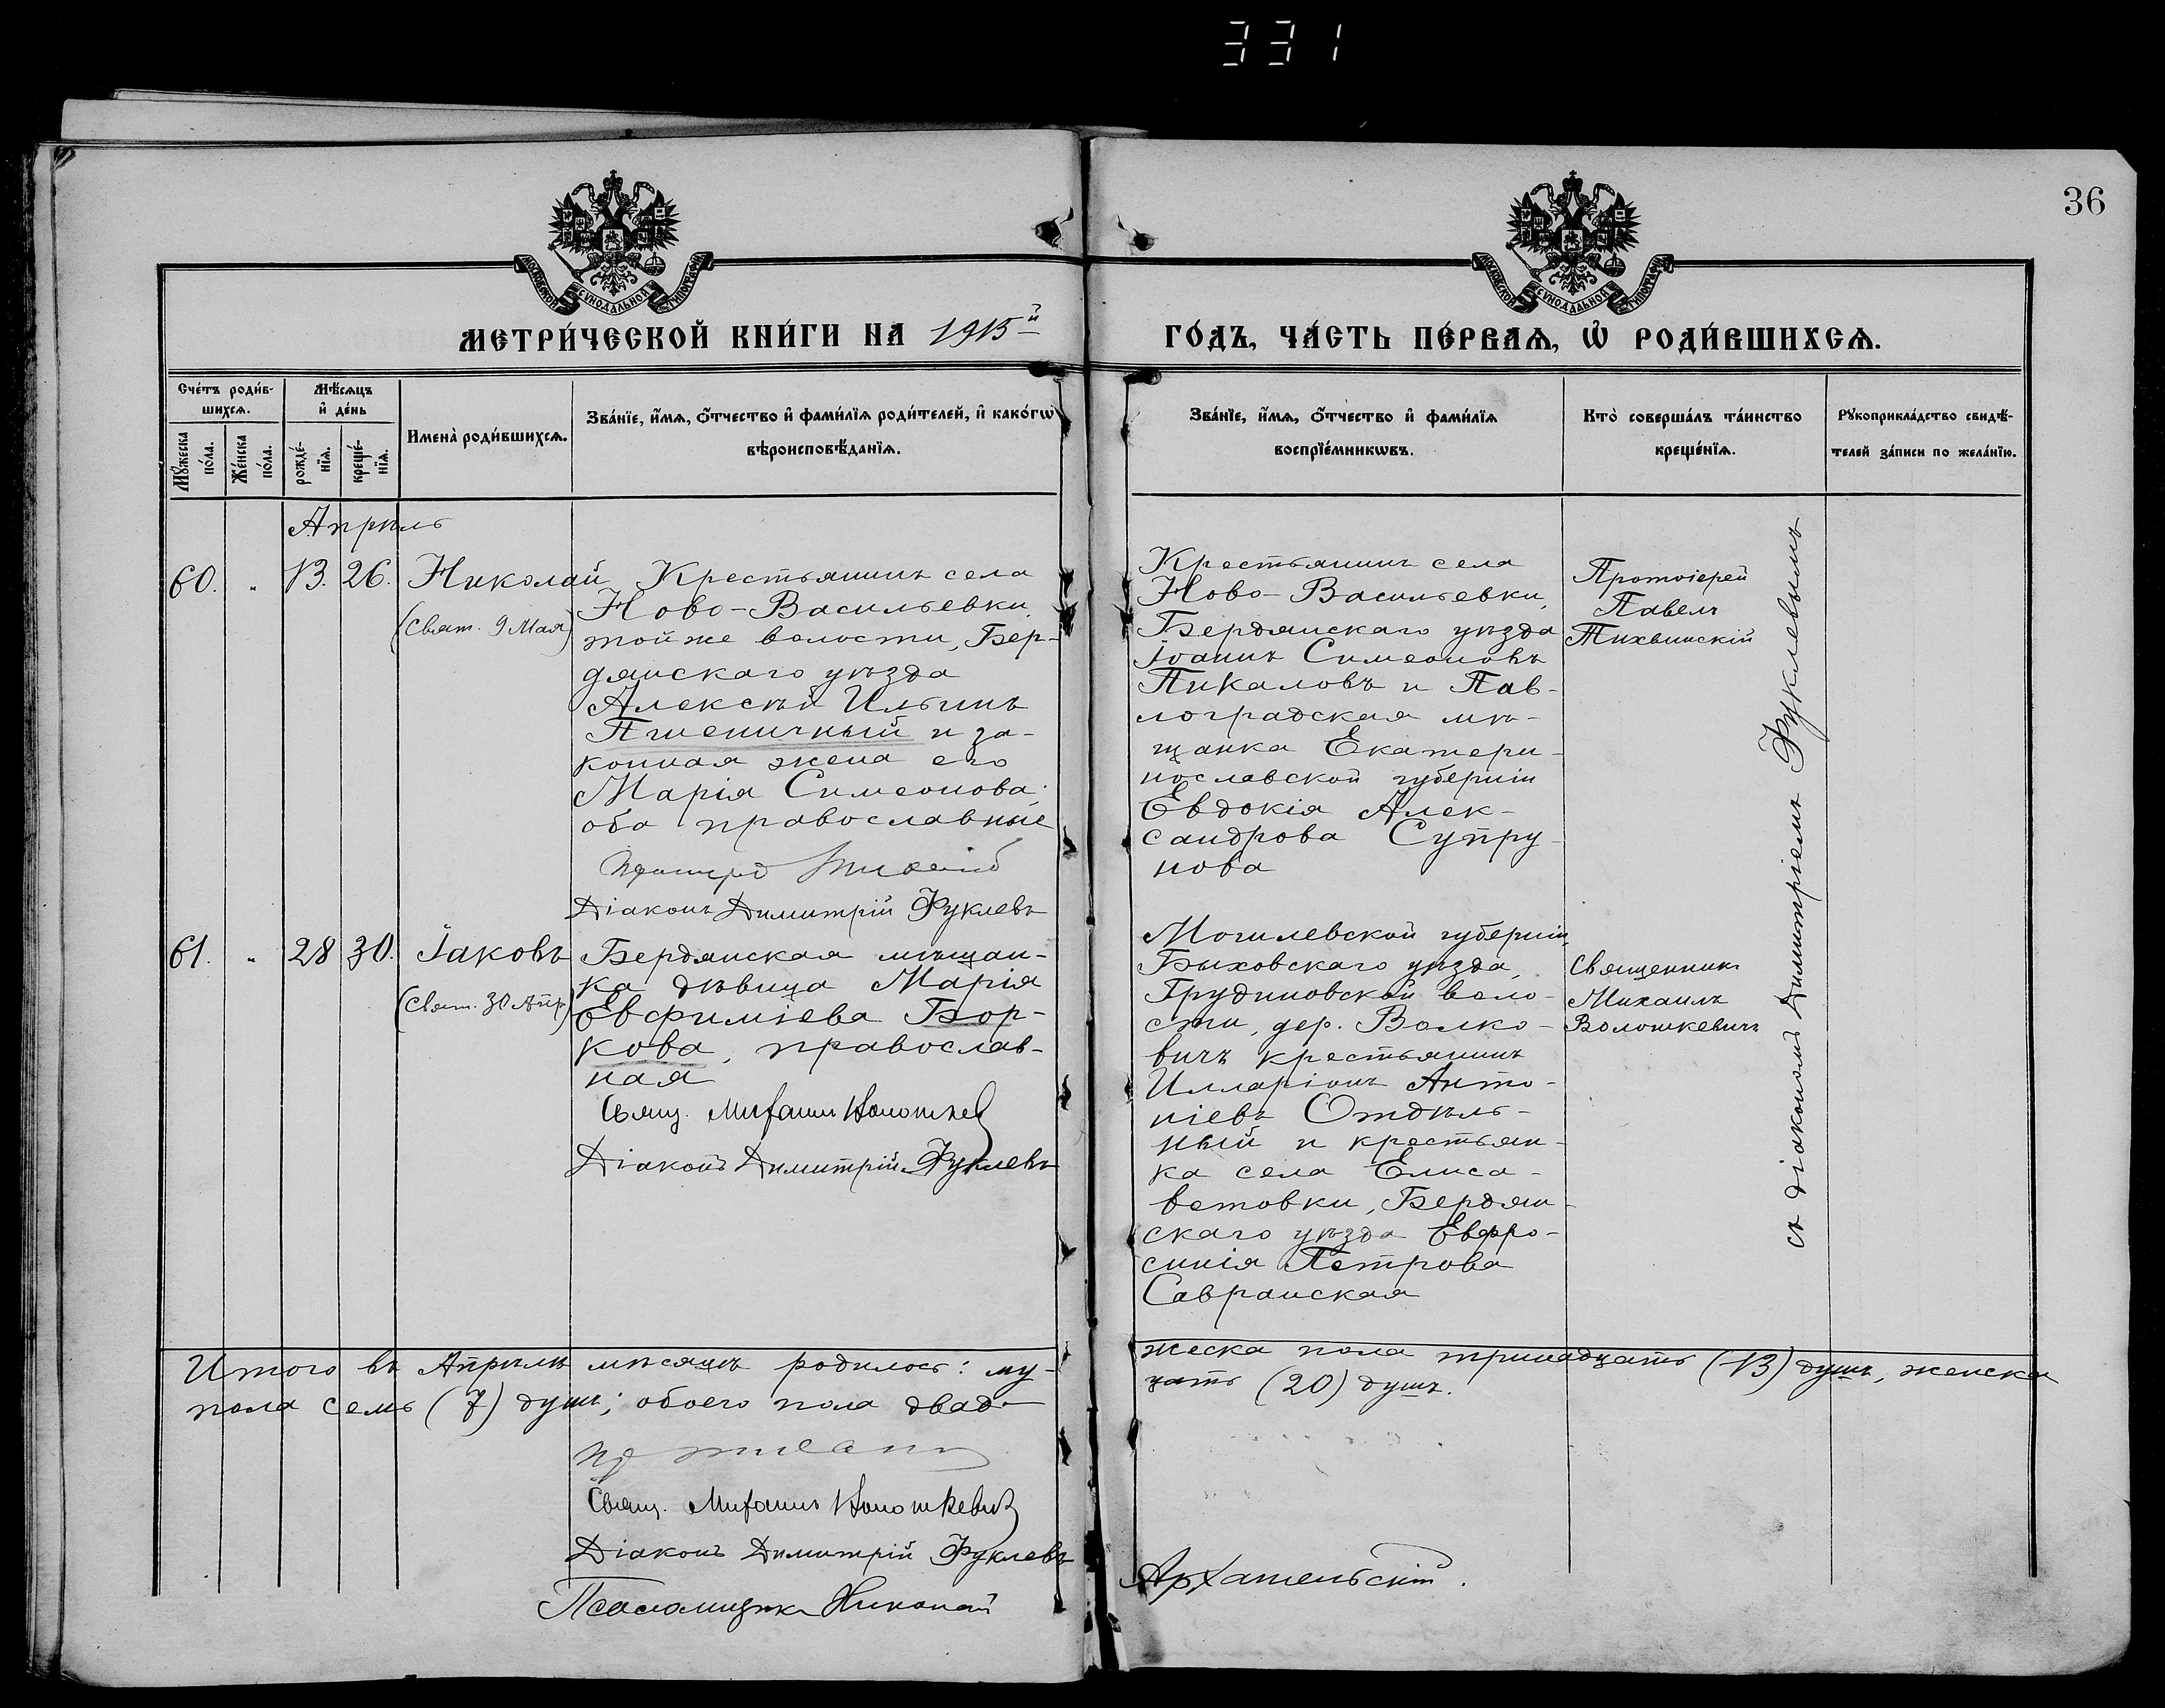 331
36
МОСКОВСКОЙ СѴНОДАЛЬНОЙ ТИПОГРАФІИ
МОСКОВСКОЙ СѴНОДАЛЬНОЙ ТИПОГРАФІИ
МЕТРИ́ЧЕСКОЙ КНИ́ГИ НА 1915й
ГО́ДЪ, ЧА́СТЬ ПЕ́РВАѦ, Ѡ҆ РОДИ́ВШИХСѦ.
Сче́тъ роди́в-
шихсѧ.
Мꙋ́жеска по́ла.
Же́нска по́ла.
Мѣ́сѧцъ
и҆ де́нь
рожде́-
нїѧ.
креще́-
нїѧ.
Имена̀ роди́вшихсѧ.
Зва́нїе, и҆́мѧ, ѻ҆́тчество и҆ фами́лїѧ роди́телей, и҆ како́гѡ
вѣроисповѣ́данїѧ.
Зва́нїе, и҆́мѧ, ѻ҆́тчество и҆ фами́лїѧ
воспрїе́мникѡвъ.
Кто̀ соверша́лъ та́инство
креще́нїѧ.
Рꙋкоприкла́дство свидѣ́-
телей за́писи по жела́нїю.
Апрѣль
60. „ 13. 26. Николай
(Свят. 9 Мая)
Крестьянинъ села
Ново-Васильевки,
той же волости, Бер-
дянскаго уѣзда
Алексѣй Ильинъ
Пшеничный и за-
конная жена его
Марія Симеонова;
оба православные
Діаконъ Димитрій Фуклевъ
Крестьянинъ села
Ново-Васильевки,
Бердянскаго уѣзда
Іоаннъ Симеоновъ
Пикаловъ и Пав-
лоградская мѣ-
щанка Екатери-
нославской губерніи
Евдокія Алек-
сандрова Супру-
нова
Протоіерей
Павелъ
Тихвинскій
съ діакономъ Димитріемъ Фуклевымъ
61. „ 28 30. Іаковъ
(Свят. 30 Апр)
Бердянская мѣщан-
ка дѣвица Марія
Евфиміева Бор-
кова, православ-
ная
Свящ. Михаилъ Волошкев
Діаконъ Димитрій Фуклевъ
Могилевской губерніи,
Быховскаго уѣзда,
Грудиновской воло-
сти, дер. Волко-
вичъ крестьянинъ
Илларіонъ Анто-
ніевъ Отдѣль-
ный и крестьян-
ка села Елиса-
ветовки, Бердян-
скаго уѣзда Евфро-
синія Петрова
Савранская
Священникъ
Михаилъ
Волошкевичъ
Итого въ Апрѣлѣ мѣсяцѣ родилось: му-
жеска пола тринадцать (13) душъ, женска
пола семь (7) душъ; обоего пола двад-
цать (20) душъ.
Свящ. Михаилъ Волошкевичъ
Діаконъ Димитрій Фуклевъ
Псаломщикъ Николай
Архангельскій.